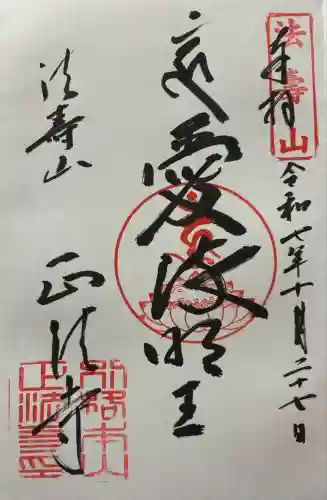 奉拝
法壽山
令和七年十月二十七日
愛染明王
法壽山
正法寺